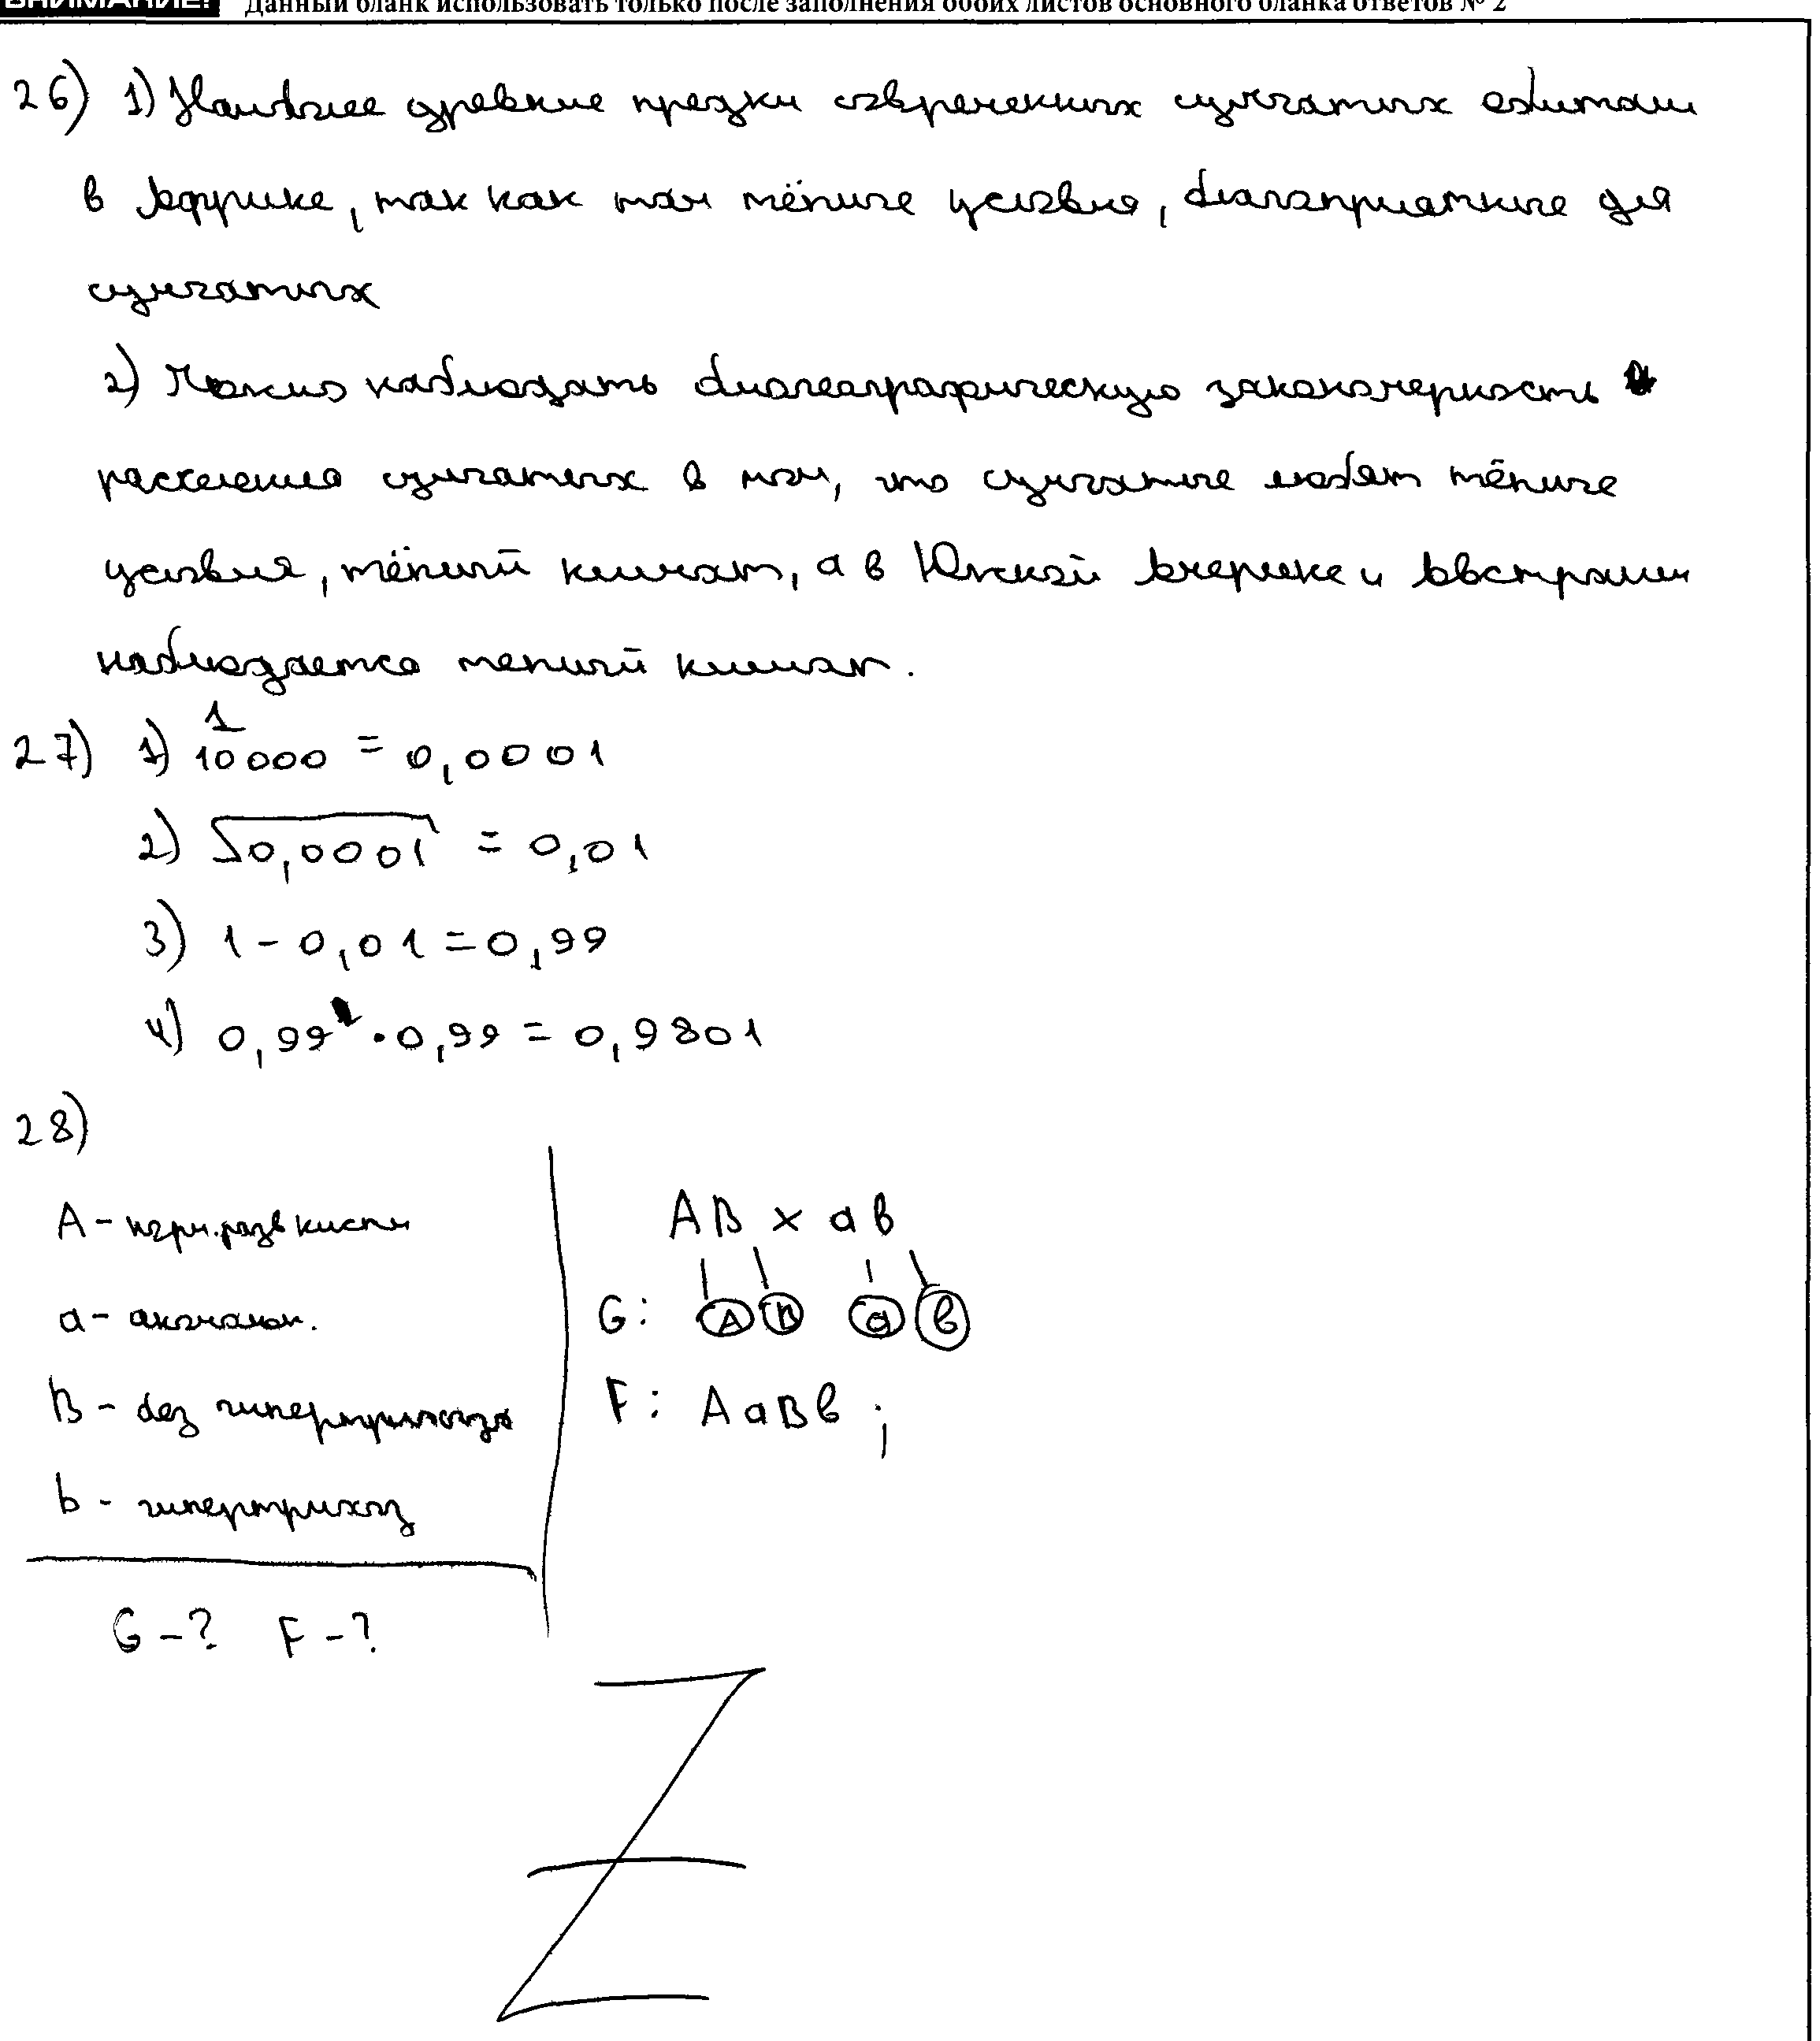 ВНИМАНИЕ! Данный бланк использовать только после заполнения обоих листов основного бланка ответов № 2
26) 1) Наиболее древние предки современных сумчатых обитали
в Африке, так как там тёплые условия, благоприятные для
сумчатых
2) Можно наблюдать биогеографическую закономерность
расселения сумчатых в том, что сумчатые любят тёплые
условия, тёплый климат, а в Южной Америке и Австралии
наблюдается теплый климат.
27) 1) 1/10000 = 0,0001
2) √0,0001 = 0,01
3) 1 - 0,01 = 0,99
4) 0,99 · 0,99 = 0,9801
28)
A - норм. разв кисти
a - ахонделия.
B - без гипертрихоза
b - гипертрихоз
G - ? F - ?
AB x aв
G: A B a в
F: AaBв ;
Z